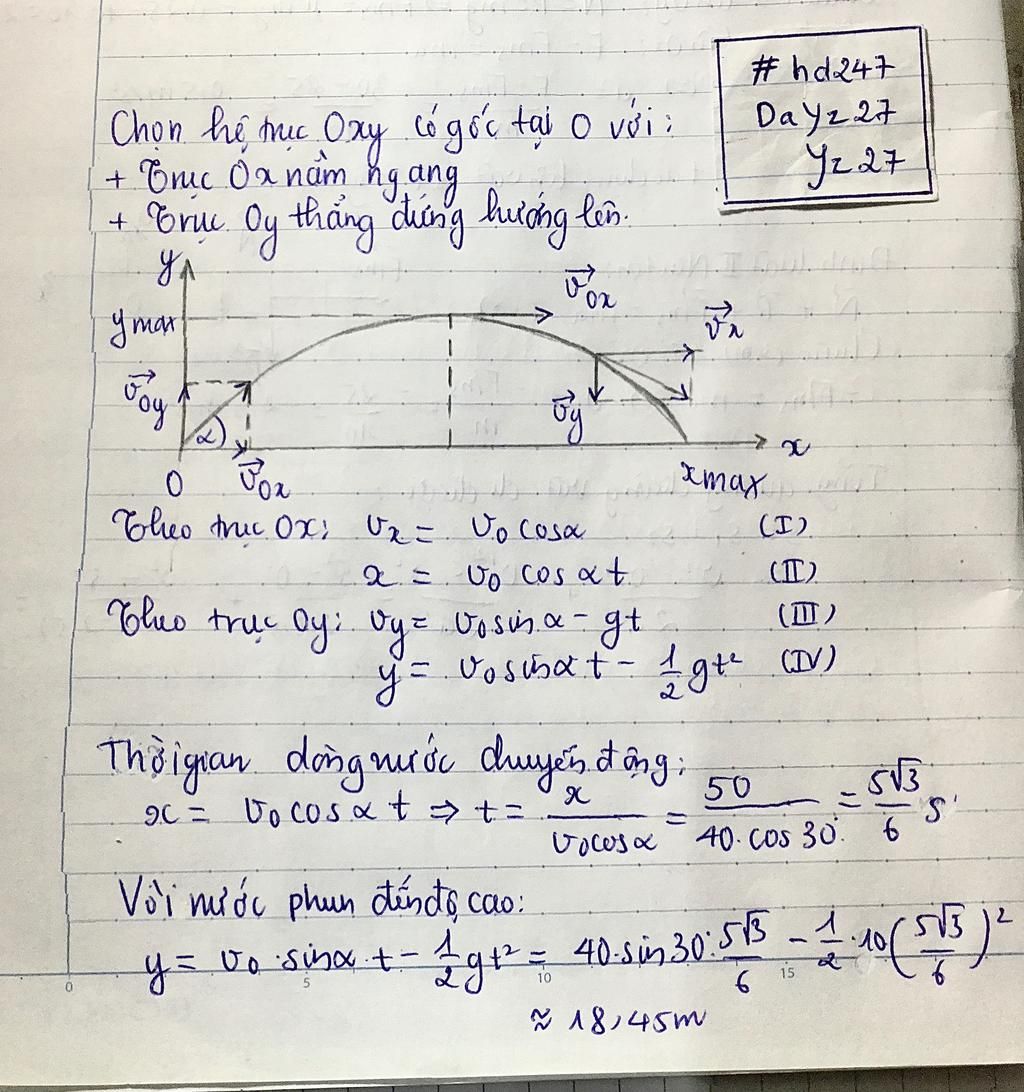 # hd247
DaYz27
Yz27
Chọn hệ trục Oxy có gốc tại O với:
+ Trục Ox nằm ngang
+ Trục Oy thẳng đứng hướng lên.
y
ymax
v⃗0x
v⃗x
v⃗0y
v⃗y
α
x
O
v⃗0x
xmax
Theo trục Ox: vx = v0 cosα (I)
x = v0 cosαt (II)
Theo trục Oy: vy = v0sinα - gt (III)
y = v0sinαt - 1/2 gt² (IV)
Thời gian dòng nước chuyển động:
x = v0cosαt ⇒ t = x/(v0cosα) = 50/(40.cos30) = 5√3/6 s
Vòi nước phun đến độ cao:
y = v0.sinα.t - 1/2 gt² = 40.sin30.5√3/6 - 1/2.10(5√3/6)²
≈ 18,45m
0 5 10 15